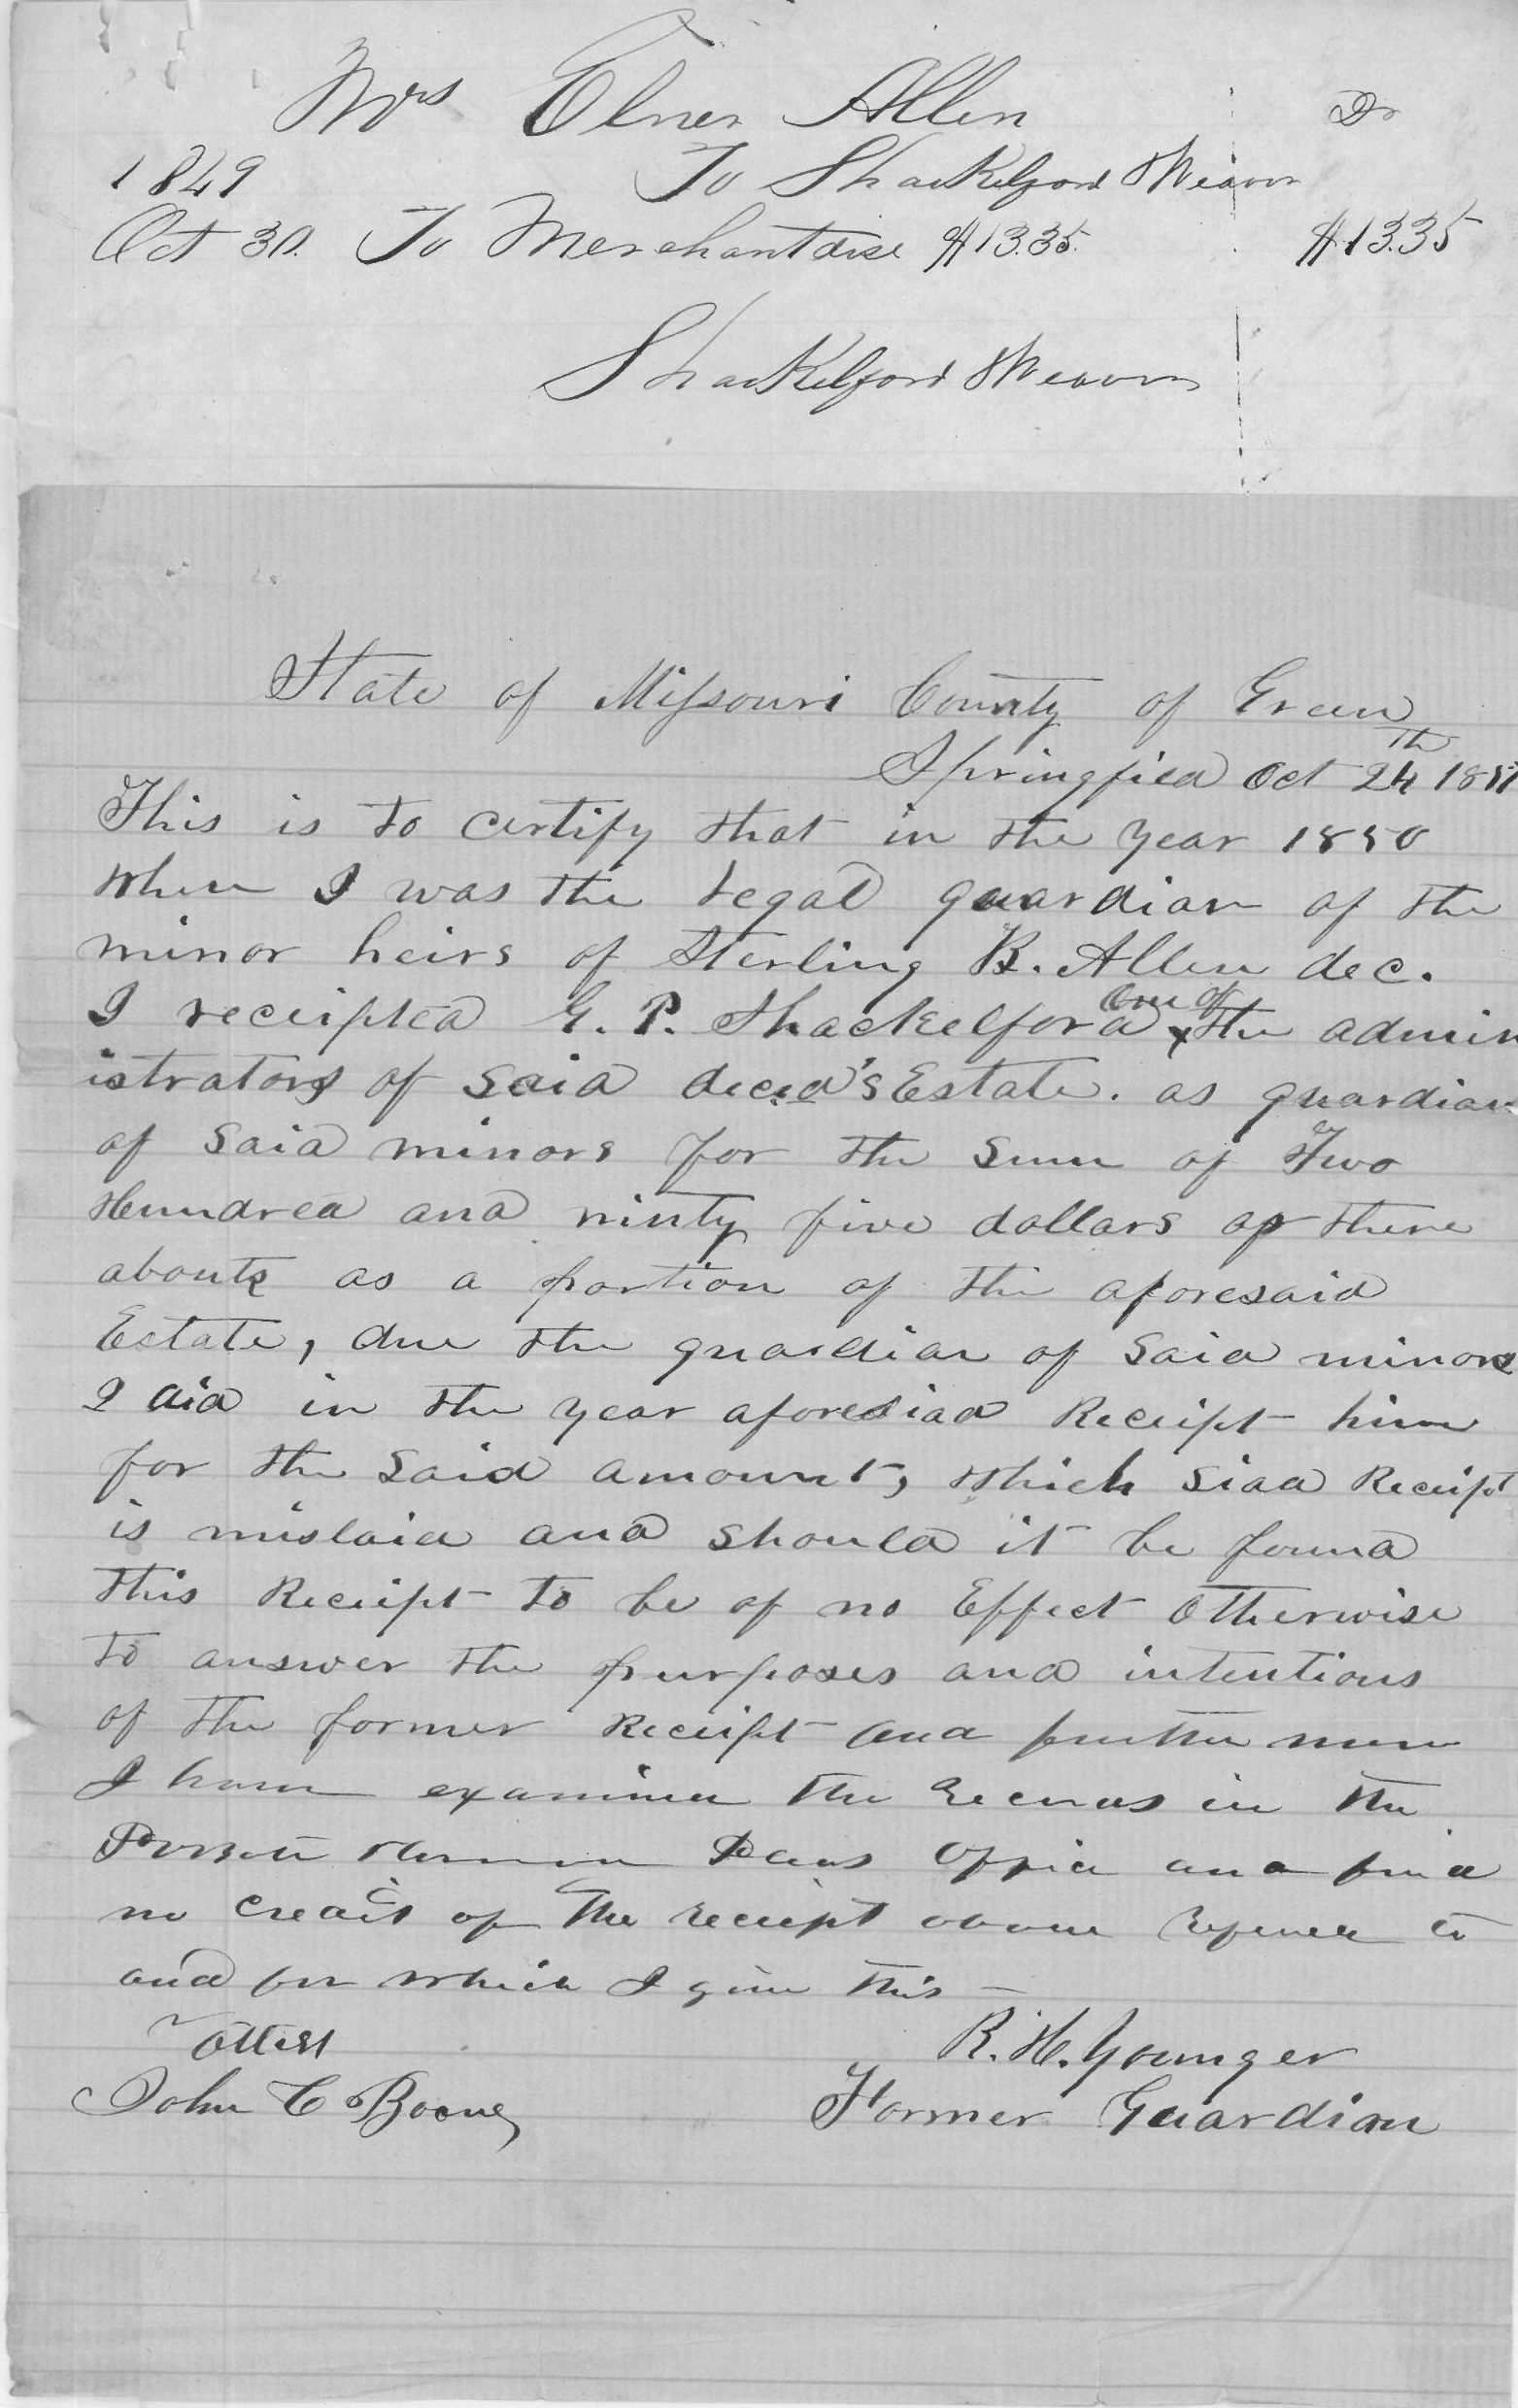 Mrs Elner Allen Dr
1849 To Shackelford & Weaver
Oct 30. To Merchantdise $13.35. $13.35
Shackelford & Weaver
State of Missouri County of Green
Springfield Oct 24th 185
This is to certify that in the year 1850
when I was the legal guardian of the
minor heirs of Sterling B. Allen dec.
I receipted G. P. Shackelford one of x the admin
istrators of said decd's Estate. as guardian
of said minors for the sum of Two
Hundred and ninty five dollars or there
abouts as a portion of the aforesaid
Estate, due the guardian of said minors
I did in the year aforesiad Receipt him
for the said amount, which siad Receipt
is mislaid and should it be found
this Receipt to be of no Effect otherwise
to answer the purposes and intentions
of the former Receipt and further more
I have examined the records in the
office and find
no credit of the receipt above referred to
and for which I give this –
attest R. H. Younger
John C Boone Former Guardian